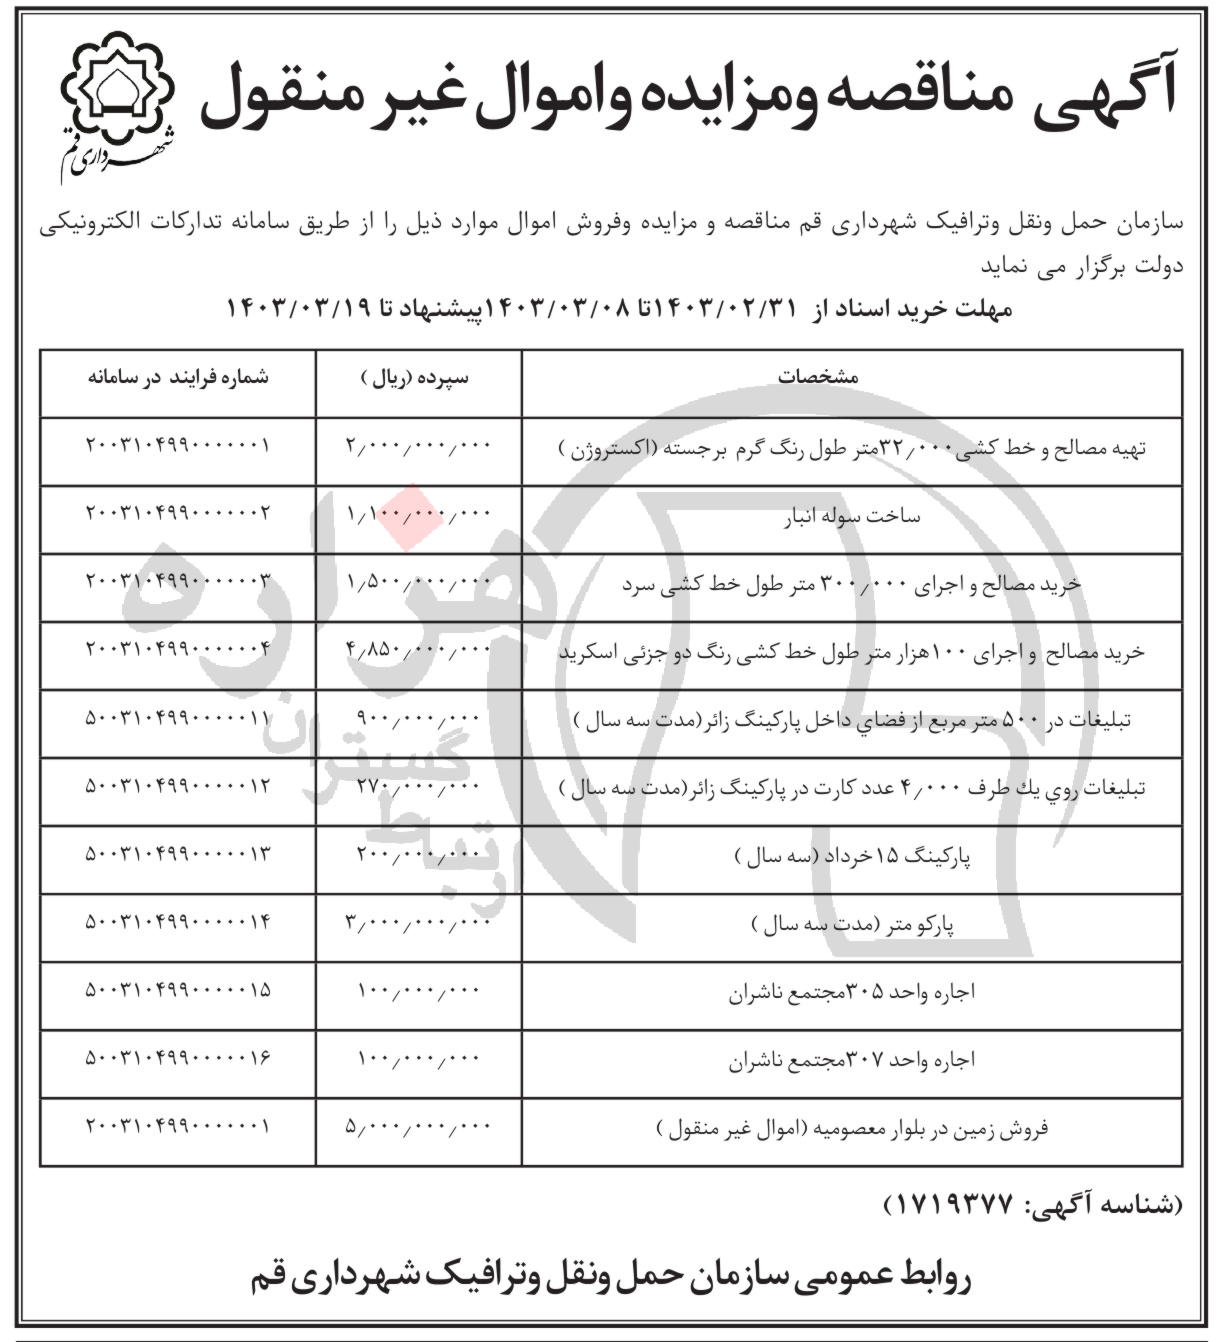 آگهی مناقصه ومزایده واموال غیر منقول
شهرداری قم
سازمان حمل ونقل وترافیک شهرداری قم مناقصه و مزایده وفروش اموال موارد ذیل را از طریق سامانه تدارکات الکترونیکی
دولت برگزار می نماید
مهلت خرید اسناد از ۱۴۰۳/۰۲/۳۱تا ۱۴۰۳/۰۳/۰۸پیشنهاد تا ۱۴۰۳/۰۳/۱۹
مشخصات سپرده (ریال ) شماره فرایند در سامانه
تهیه مصالح و خط کشی۳۲٫۰۰۰متر طول رنگ گرم برجسته (اکستروژن ) ۲٫۰۰۰٫۰۰۰٫۰۰۰ ۲۰۰۳۱۰۴۹۹۰۰۰۰۰۰۱
ساخت سوله انبار ۱٫۱۰۰٫۰۰۰٫۰۰۰ ۲۰۰۳۱۰۴۹۹۰۰۰۰۰۰۲
خرید مصالح و اجرای ۳۰۰٫۰۰۰ متر طول خط کشی سرد ۱٫۵۰۰٫۰۰۰٫۰۰۰ ۲۰۰۳۱۰۴۹۹۰۰۰۰۰۰۳
خرید مصالح و اجرای ۱۰۰هزار متر طول خط کشی رنگ دو جزئی اسکرید ۴٫۸۵۰٫۰۰۰٫۰۰۰ ۲۰۰۳۱۰۴۹۹۰۰۰۰۰۰۴
تبلیغات در ۵۰۰ متر مربع از فضاي داخل پارکینگ زائر(مدت سه سال ) ۹۰۰٫۰۰۰٫۰۰۰ ۵۰۰۳۱۰۴۹۹۰۰۰۰۰۱۱
تبلیغات روي يك طرف ۴٫۰۰۰ عدد کارت در پارکینگ زائر(مدت سه سال ) ۲۷۰٫۰۰۰٫۰۰۰ ۵۰۰۳۱۰۴۹۹۰۰۰۰۰۱۲
پارکینگ ۱۵خرداد (سه سال ) ۲۰۰٫۰۰۰٫۰۰۰ ۵۰۰۳۱۰۴۹۹۰۰۰۰۰۱۳
پارکو متر (مدت سه سال ) ۳٫۰۰۰٫۰۰۰٫۰۰۰ ۵۰۰۳۱۰۴۹۹۰۰۰۰۰۱۴
اجاره واحد ۳۰۵مجتمع ناشران ۱۰۰٫۰۰۰٫۰۰۰ ۵۰۰۳۱۰۴۹۹۰۰۰۰۰۱۵
اجاره واحد ۳۰۷مجتمع ناشران ۱۰۰٫۰۰۰٫۰۰۰ ۵۰۰۳۱۰۴۹۹۰۰۰۰۰۱۶
فروش زمین در بلوار معصومیه (اموال غیر منقول ) ۵٫۰۰۰٫۰۰۰٫۰۰۰ ۲۰۰۳۱۰۴۹۹۰۰۰۰۰۰۱
هزاره
گستران
ارتباط
(شناسه آگهی: ۱۷۱۹۳۷۷)
روابط عمومی سازمان حمل ونقل وترافیک شهرداری قم